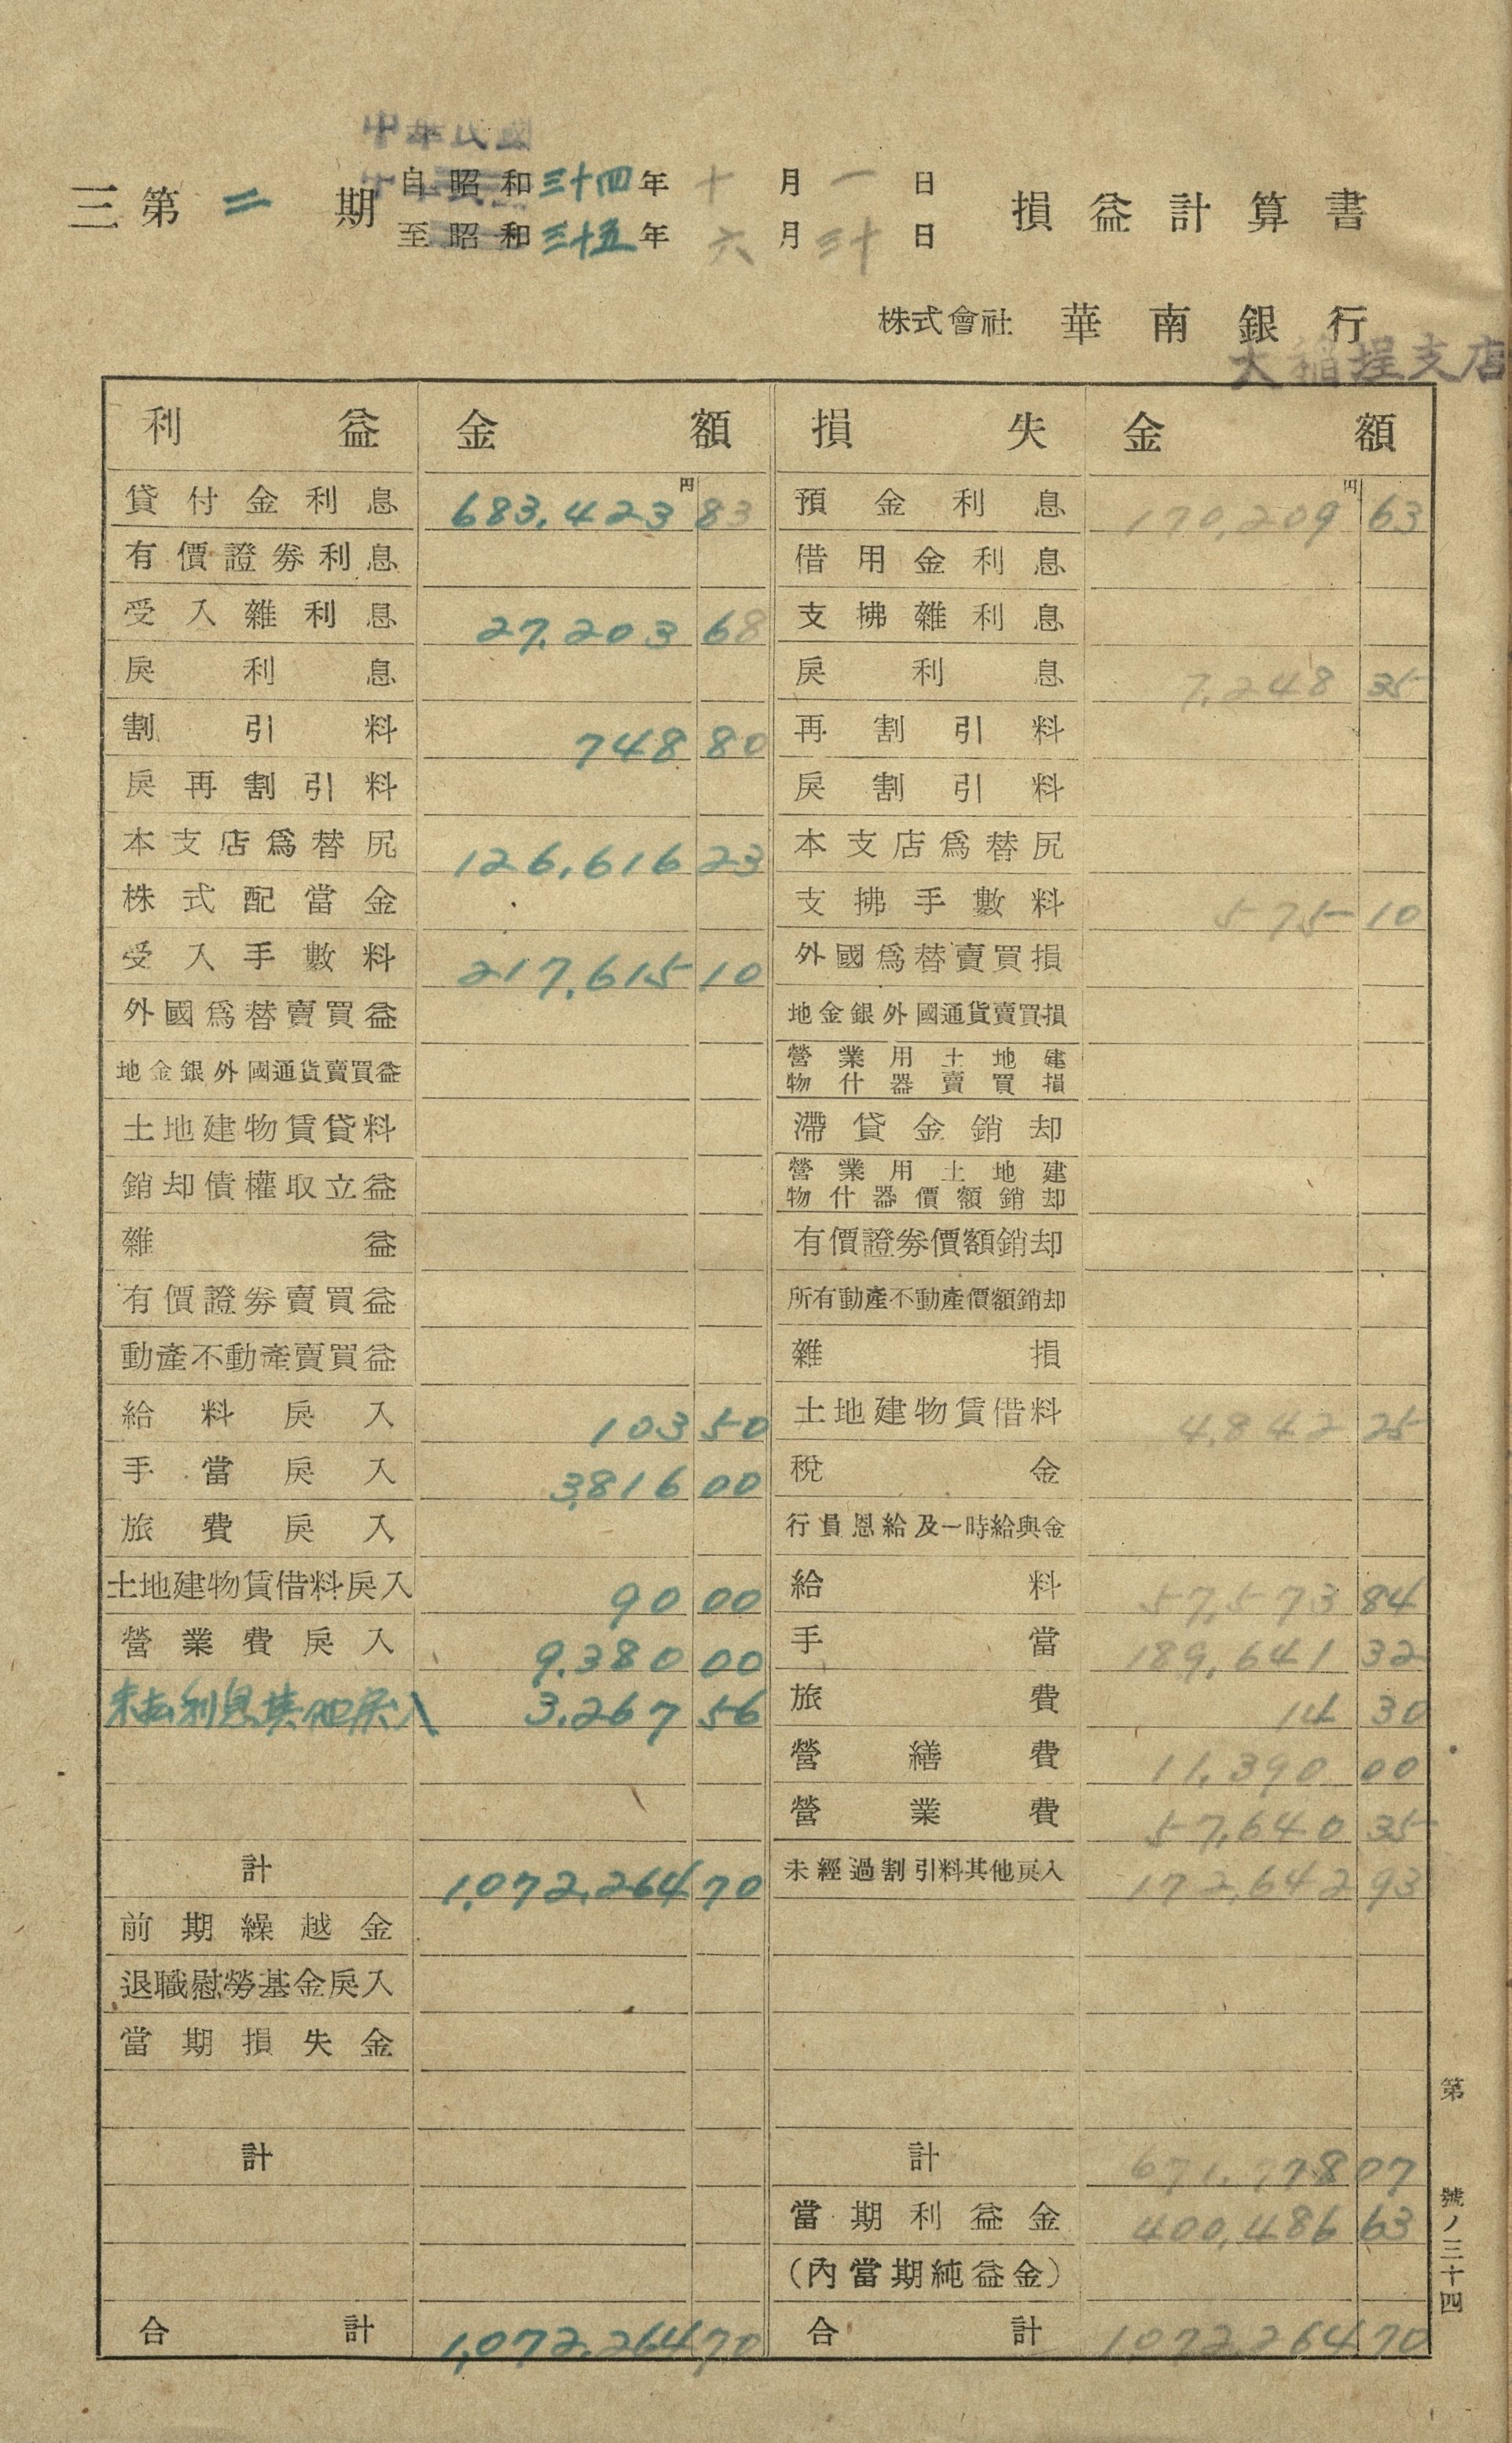 中華民國
三第二期 自昭和三十四年十月一日 損益計算書
至昭和三十五年六月三十日
株式會社 華南銀行
大稻埕支店
利益 金額 損失 金額
貸付金利息 683,423円83 預金利息 170,209円63
有價證券利息 借用金利息
受入雜利息 27,203 68 支拂雜利息
戾利息 戾利息 7,248 35
割引料 748 80 再割引料
戾再割引料 戾割引料
本支店爲替尻 126,616 23 本支店爲替尻
株式配當金 支拂手數料 575 10
受入手數料 217,615 10 外國爲替賣買損
外國爲替賣買益 地金銀外國通貨賣買損
地金銀外國通貨賣買益 營業用土地建物什器賣買損
土地建物賃貸料 滯貸金銷却
銷却債權取立益 營業用土地建物什器價額銷却
雜益 有價證券價額銷却
有價證券賣買益 所有動產不動產價額銷却
動產不動產賣買益 雜損
給料戾入 103 50 土地建物賃借料 4,842 25
手當戾入 3,816 00 稅金
旅費戾入 行員恩給及一時給與金
土地建物賃借料戾入 90 00 給料 57,573 84
營業費戾入 9,380 00 手當 189,641 32
未払利息其他戾入 3,267 56 旅費 14 30
營繕費 11,390 00
營業費 57,640 35
計 1,072,264 70 未經過割引料其他戾入 172,642 93
前期繰越金
退職慰勞基金戾入
當期損失金
計 計 671,778 07
當期利益金 400,486 63
(內當期純益金)
合計 1,072,264 70 合計 1,072,264 70
第 號ノ三十四